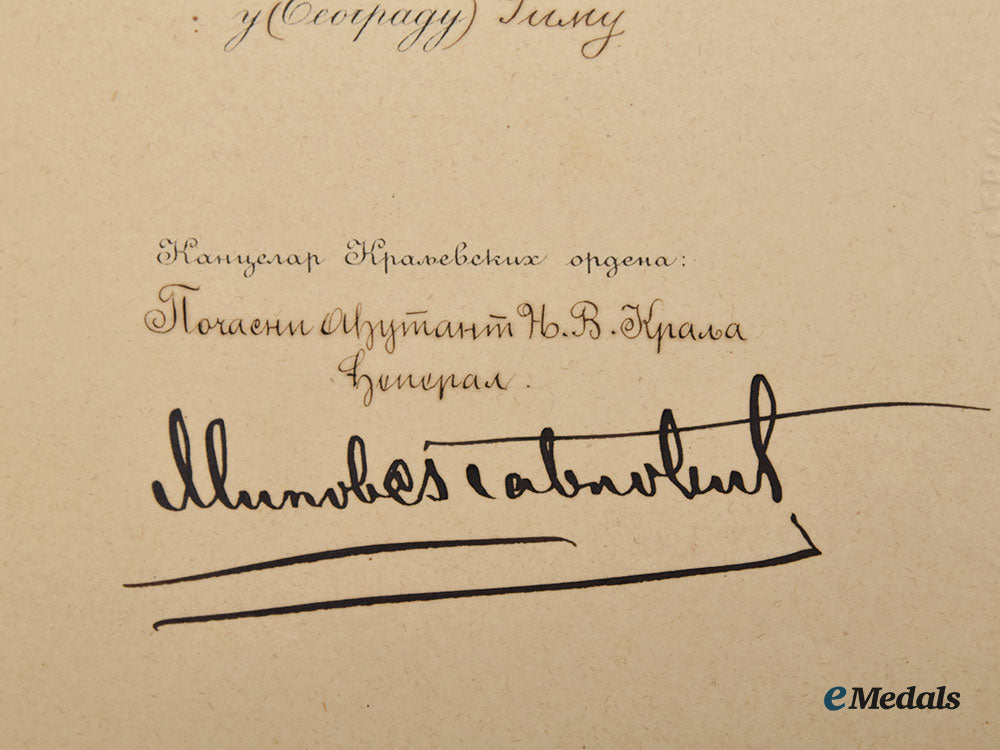 у (Београду) Риму
Канцелар Краљевских ордена:
Почасни ађутант Њ. В. Краља
Ђенерал.
Павловић
eMedals